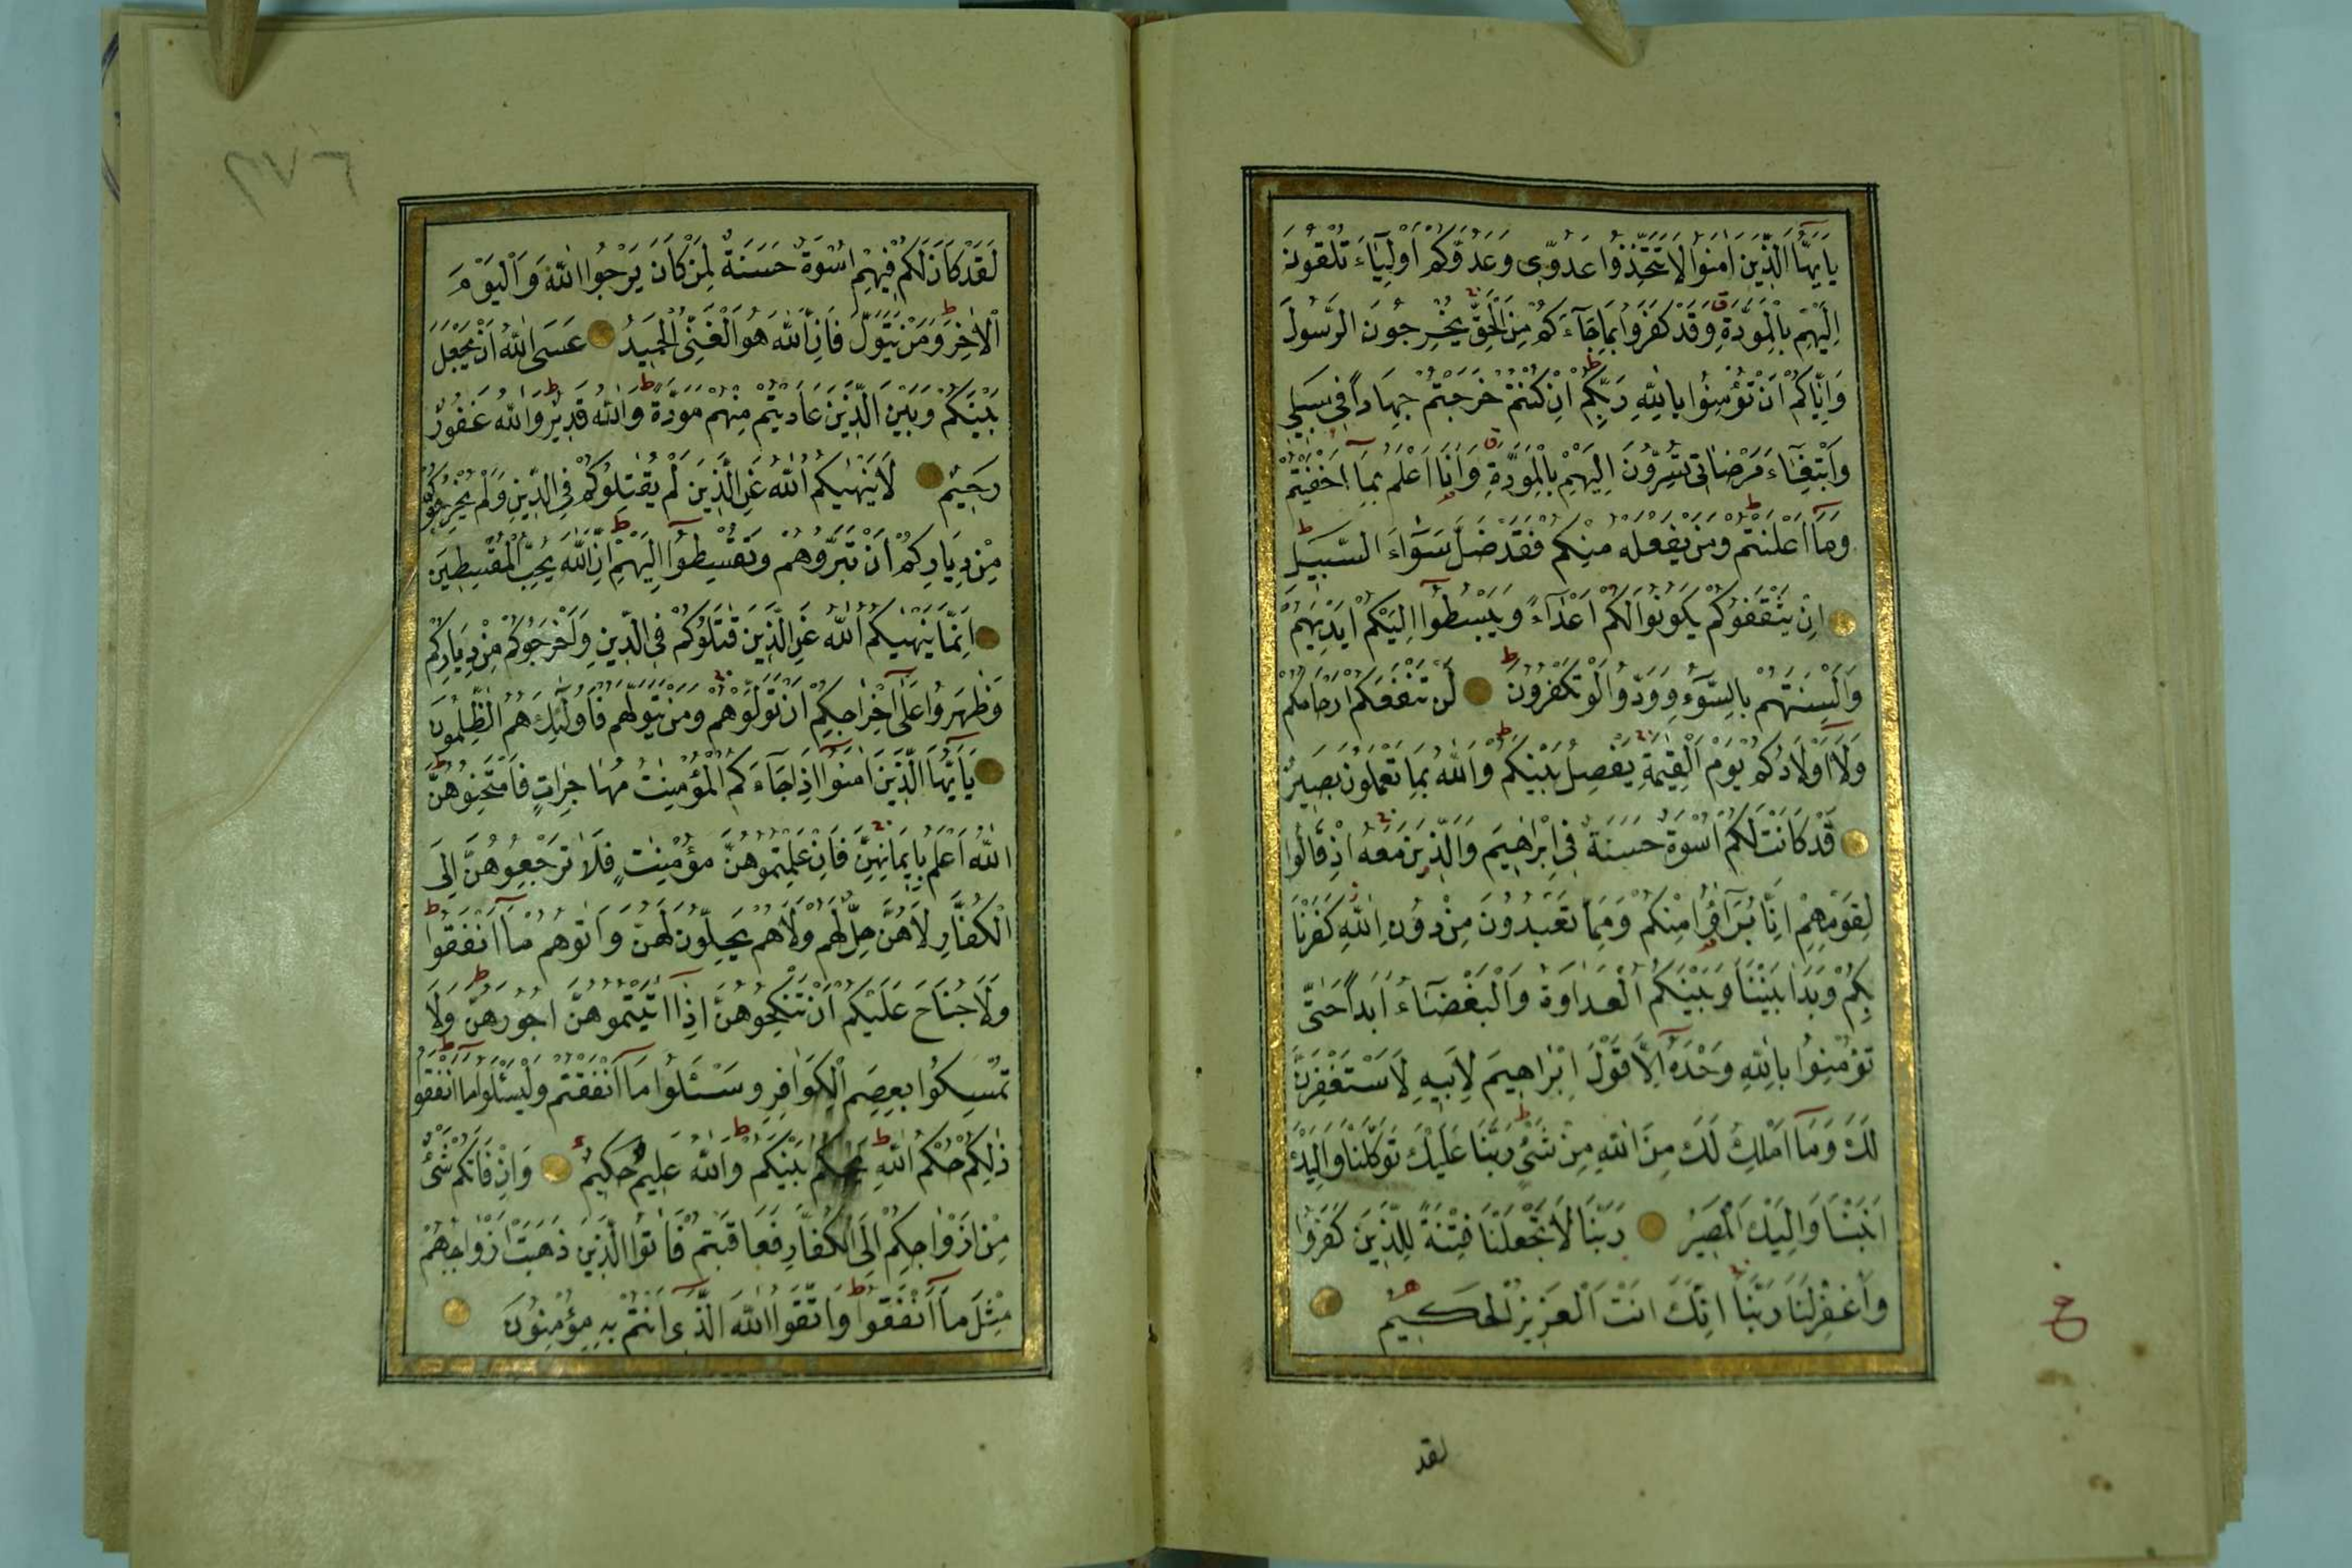 يَا اَيُّهَا الَّذِينَ اٰمَنُوا لَا تَتَّخِذُوا عَدُوِّى وَعَدُوَّكُمْ اَوْلِيَٓاءَ تُلْقُونَ
اِلَيْهِمْ بِالْمَوَدَّةِ وَقَدْ كَفَرُوا بِمَا جَٓاءَكُمْ مِنَ الْحَقِّ يُخْرِجُونَ الرَّسُولَ
وَاِيَّاكُمْ اَنْ تُؤْمِنُوا بِاللّٰهِ رَبِّكُمْ اِنْ كُنْتُمْ خَرَجْتُمْ جِهَادًا فِى سَبِيلِى
وَابْتِغَٓاءَ مَرْضَاتِى تُسِرُّونَ اِلَيْهِمْ بِالْمَوَدَّةِ وَاَنَا اَعْلَمُ بِمَٓا اَخْفَيْتُمْ
وَمَٓا اَعْلَنْتُمْ وَمَنْ يَفْعَلْهُ مِنْكُمْ فَقَدْ ضَلَّ سَوَٓاءَ السَّبِيلِ
اِنْ يَثْقَفُوكُمْ يَكُونُوا لَكُمْ اَعْدَٓاءً وَيَبْسُطُٓوا اِلَيْكُمْ اَيْدِيَهُمْ
وَاَلْسِنَتَهُمْ بِالسُّٓوءِ وَوَدُّوا لَوْ تَكْفُرُونَ لَنْ تَنْفَعَكُمْ اَرْحَامُكُمْ
وَلَٓا اَوْلَادُكُمْ يَوْمَ الْقِيٰمَةِ يَفْصِلُ بَيْنَكُمْ وَاللّٰهُ بِمَا تَعْمَلُونَ بَصِيرٌ
قَدْ كَانَتْ لَكُمْ اُسْوَةٌ حَسَنَةٌ فِى اِبْرٰهِيمَ وَالَّذِينَ مَعَهُ اِذْ قَالُوا
لِقَوْمِهِمْ اِنَّا بُرَءٰٓؤُا مِنْكُمْ وَمِمَّا تَعْبُدُونَ مِنْ دُونِ اللّٰهِ كَفَرْنَا
بِكُمْ وَبَدَا بَيْنَنَا وَبَيْنَكُمُ الْعَدَاوَةُ وَالْبَغْضَٓاءُ اَبَدًا حَتّٰى
تُؤْمِنُوا بِاللّٰهِ وَحْدَهُٓ اِلَّا قَوْلَ اِبْرٰاهِيمَ لِاَبِيهِ لَاَسْتَغْفِرَنَّ
لَكَ وَمَٓا اَمْلِكُ لَكَ مِنَ اللّٰهِ مِنْ شَىْءٍ رَبَّنَا عَلَيْكَ تَوَكَّلْنَا وَاِلَيْكَ
اَنَبْنَا وَاِلَيْكَ الْمَصِيرُ رَبَّنَا لَا تَجْعَلْنَا فِتْنَةً لِلَّذِينَ كَفَرُوا
وَاغْفِرْ لَنَا رَبَّنَا اِنَّكَ اَنْتَ الْعَزِيزُ الْحَكِيمُ
ع
لقد
٣٧٦
لَقَدْ كَانَ لَكُمْ فِيهِمْ اُسْوَةٌ حَسَنَةٌ لِمَنْ كَانَ يَرْجُوا اللّٰهَ وَالْيَوْمَ
الْاٰخِرَ وَمَنْ يَتَوَلَّ فَاِنَّ اللّٰهَ هُوَ الْغَنِىُّ الْحَمِيدُ عَسَى اللّٰهُ اَنْ يَجْعَلَ
بَيْنَكُمْ وَبَيْنَ الَّذِينَ عَادَيْتُمْ مِنْهُمْ مَوَدَّةً وَاللّٰهُ قَدِيرٌ وَاللّٰهُ غَفُورٌ
رَحِيمٌ لَا يَنْهٰيكُمُ اللّٰهُ عَنِ الَّذِينَ لَمْ يُقَاتِلُوكُمْ فِى الدِّينِ وَلَمْ يُخْرِجُوكُمْ
مِنْ دِيَارِكُمْ اَنْ تَبَرُّوهُمْ وَتُقْسِطُٓوا اِلَيْهِمْ اِنَّ اللّٰهَ يُحِبُّ الْمُقْسِطِينَ
اِنَّمَا يَنْهٰيكُمُ اللّٰهُ عَنِ الَّذِينَ قَاتَلُوكُمْ فِى الدِّينِ وَاَخْرَجُوكُمْ مِنْ دِيَارِكُمْ
وَظَٰهَرُوا عَلٰٓى اِخْرَاجِكُمْ اَنْ تَوَلَّوْهُمْ وَمَنْ يَتَوَلَّهُمْ فَاُولٰٓئِكَ هُمُ الظّٰلِمُونَ
يَٓا اَيُّهَا الَّذِينَ اٰمَنُٓوا اِذَا جَٓاءَكُمُ الْمُؤْمِنٰتُ مُهَاجِرَاتٍ فَامْتَحِنُوهُنَّ
اَللّٰهُ اَعْلَمُ بِاِيمَانِهِنَّ فَاِنْ عَلِمْتُمُوهُنَّ مُؤْمِنٰتٍ فَلَا تَرْجِعُوهُنَّ اِلَى
الْكُفَّارِ لَا هُنَّ حِلٌّ لَهُمْ وَلَا هُمْ يَحِلُّونَ لَهُنَّ وَاٰتُوهُمْ مَٓا اَنْفَقُوا
وَلَا جُنَاحَ عَلَيْكُمْ اَنْ تَنْكِحُوهُنَّ اِذَٓا اٰتَيْتُمُوهُنَّ اُجُورَهُنَّ وَلَا
تُمْسِكُوا بِعِصَمِ الْكَوَافِرِ وَسْئَلُوا مَٓا اَنْفَقْتُمْ وَلْيَسْئَلُوا مَٓا اَنْفَقُوا
ذٰلِكُمْ حُكْمُ اللّٰهِ يَحْكُمُ بَيْنَكُمْ وَاللّٰهُ عَلِيمٌ حَكِيمٌ وَاِنْ فَاتَكُمْ شَىْءٌ
مِنْ اَزْوَاجِكُمْ اِلَى الْكُفَّارِ فَعَاقَبْتُمْ فَاٰتُوا الَّذِينَ ذَهَبَتْ اَزْوَاجُهُمْ
مِثْلَ مَٓا اَنْفَقُوا وَاتَّقُوا اللّٰهَ الَّذِٓى اَنْتُمْ بِهِ مُؤْمِنُونَ